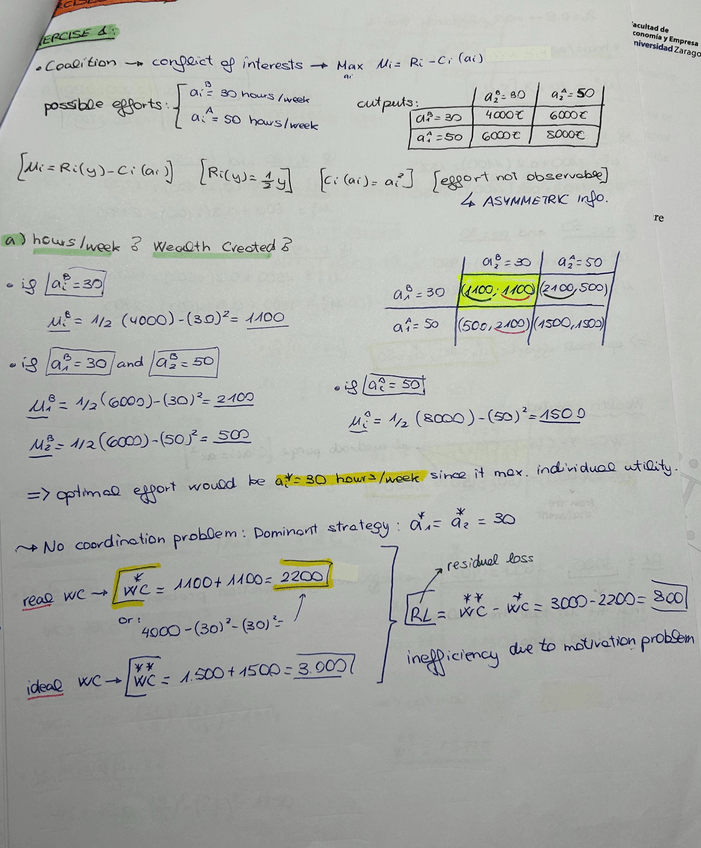 ERCISE 1:
acultad de
conomía y Empresa
niversidad Zarago
• Coalition → conflict of interests → Max μi = Ri - Ci (ai)
ai
possible efforts: { aiᴮ = 30 hours/week
aiᴬ = 50 hours/week
outputs:
a₂ᴮ = 30 | a₂ᴬ = 50
a₁ᴮ = 30 | 4000€ | 6000€
a₁ᴬ = 50 | 6000€ | 8000€
[μi = Ri(y) - Ci(ai)] [Ri(y) = 1/2 y] [Ci(ai) = ai²] [effort not observable]
↳ ASYMMETRIC info.
re
a) hours/week? Wealth Created?
a₂ᴮ = 30 | a₂ᴬ = 50
a₁ᴮ = 30 | (1100, 1100) | (2100, 500)
a₁ᴬ = 50 | (500, 2100) | (1500, 1500)
• if aiᴮ = 30
μiᴮ = 1/2 (4000) - (30)² = 1100
• if a₁ᴮ = 30 and a₂ᴮ = 50
μ₁ᴮ = 1/2 (6000) - (30)² = 2100
μ₂ᴮ = 1/2 (6000) - (50)² = 500
• if aiᴬ = 50
μiᴬ = 1/2 (8000) - (50)² = 1500
=> optimal effort would be ai* = 30 hours/week since it max. individual utility.
~> No coordination problem: Dominant strategy: a₁* = a₂* = 30
real WC → WC* = 1100 + 1100 = 2200
or: 4000 - (30)² - (30)² =
ideal WC → WC** = 1.500 + 1500 = 3.000
residual loss
RL = WC** - WC* = 3000 - 2200 = 800
inefficiency due to motivation problem